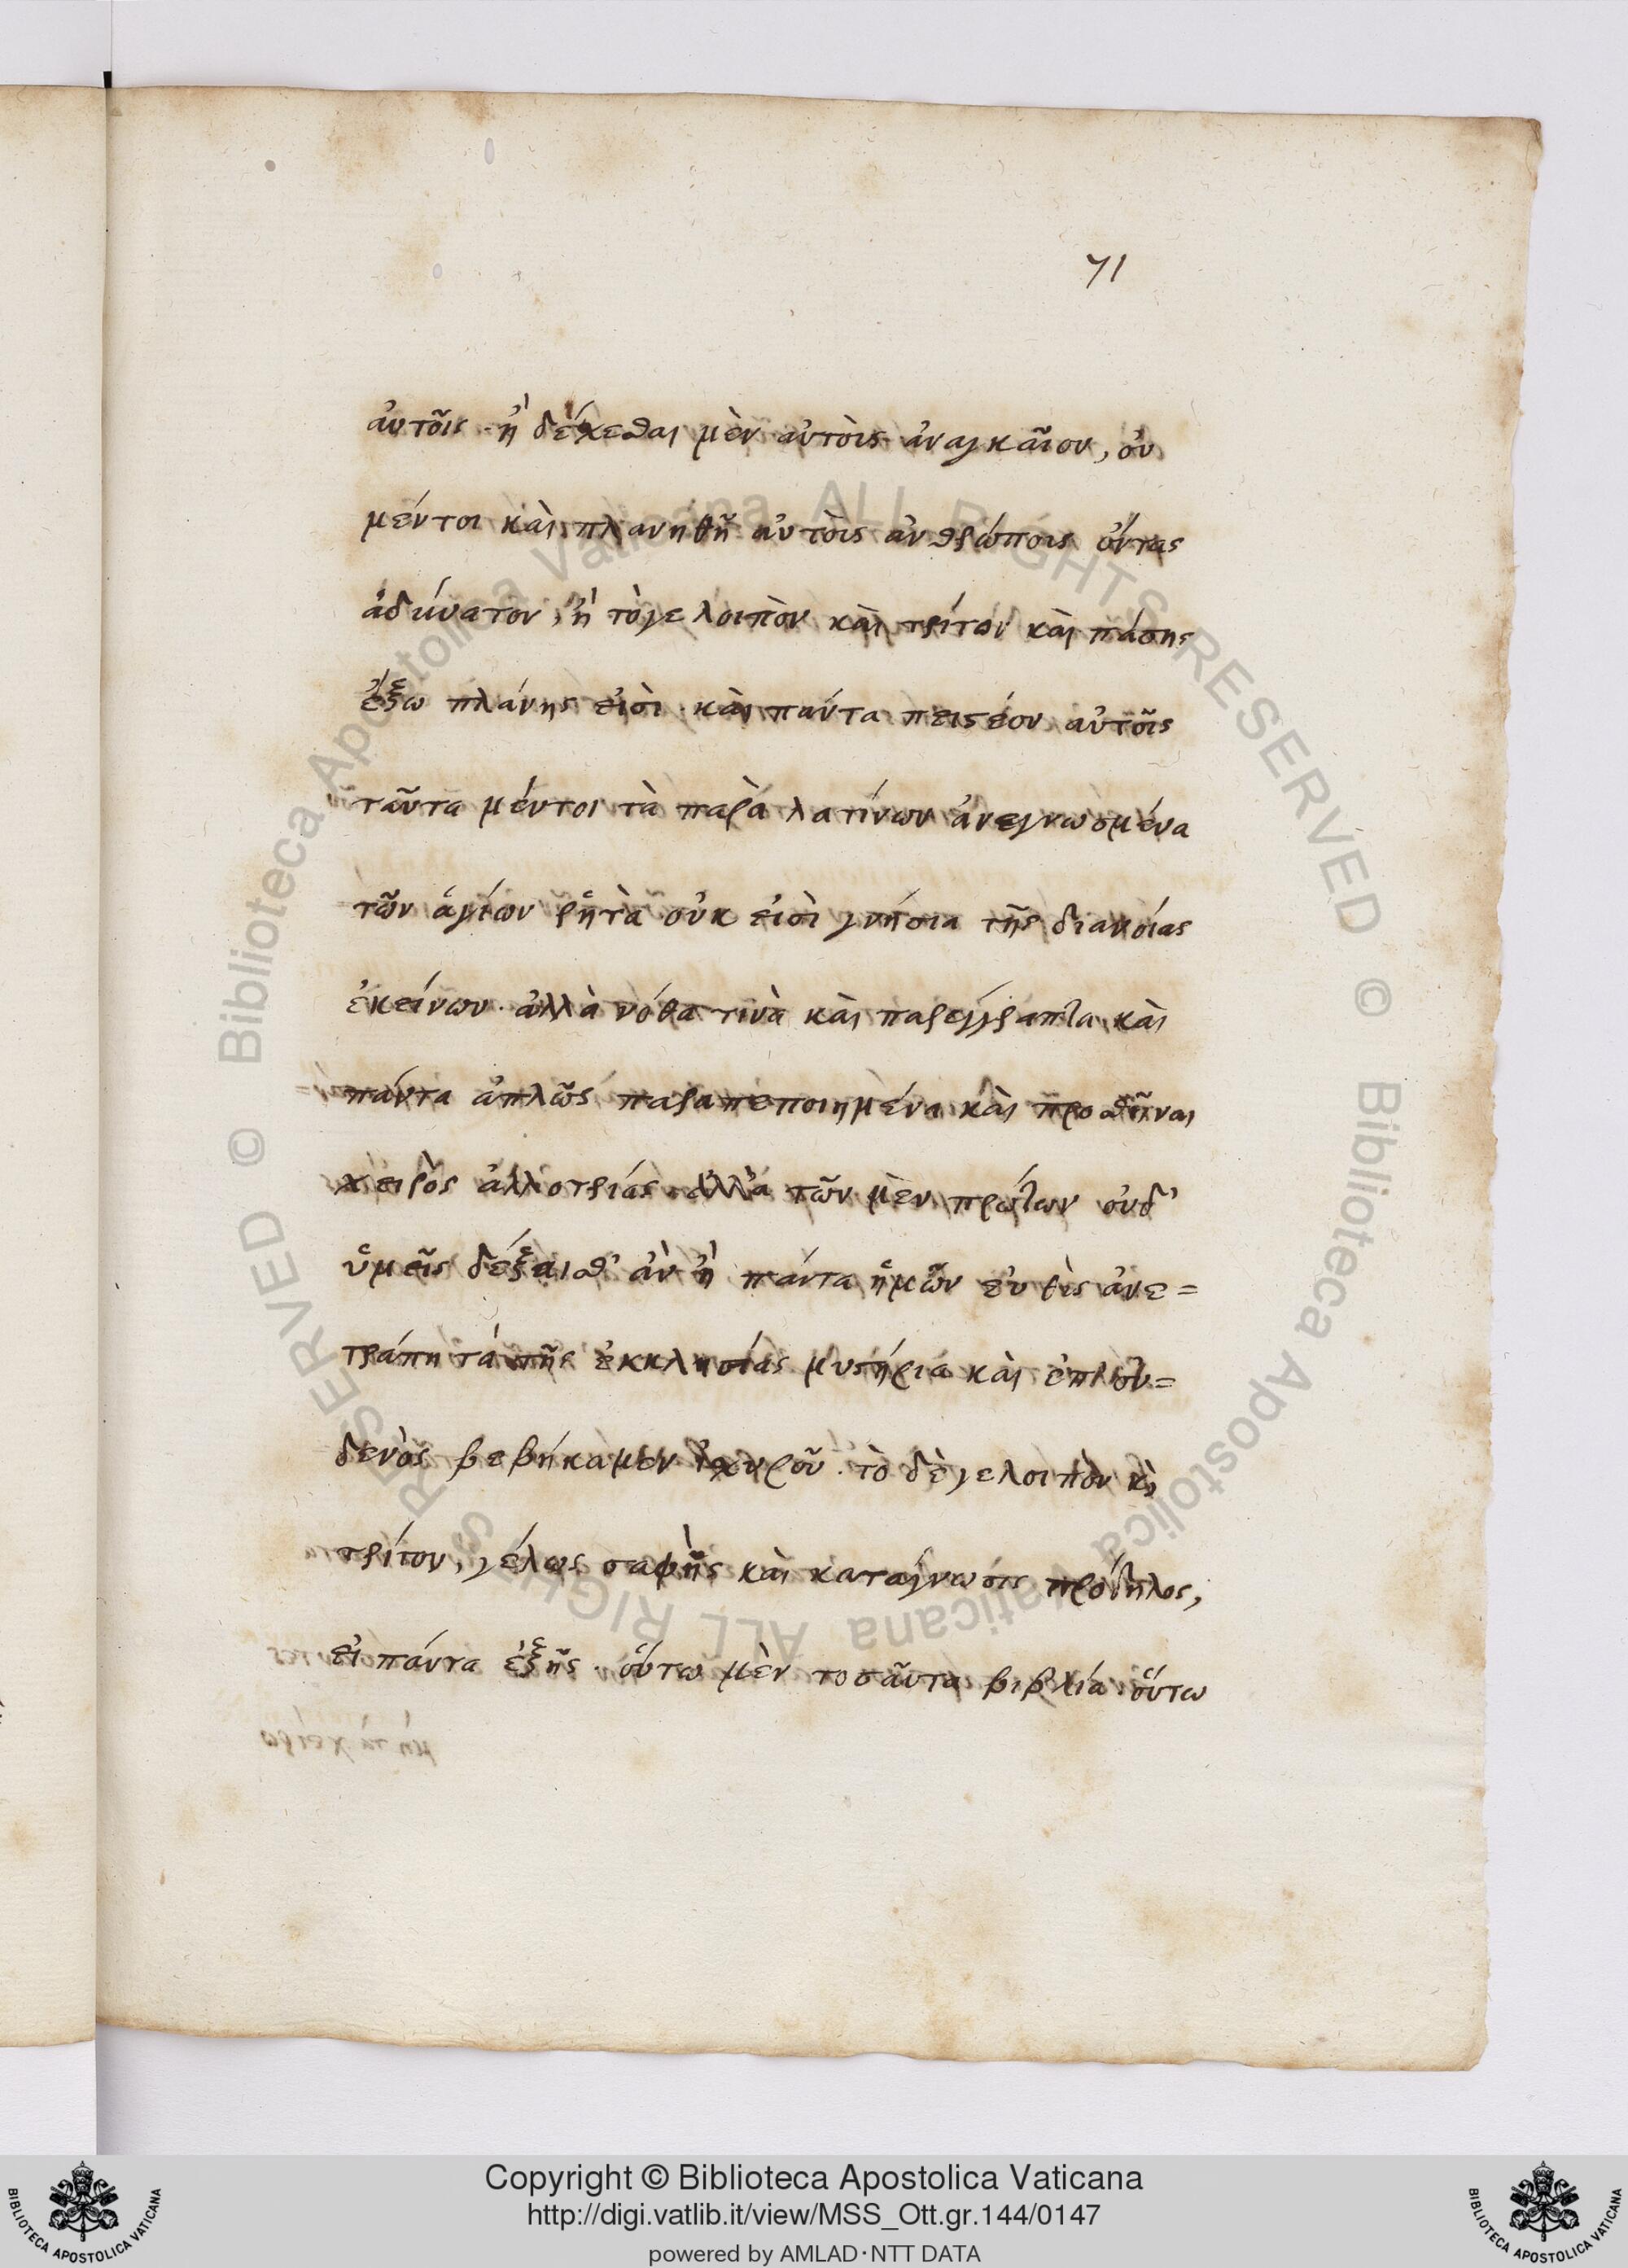 71
αὐτοῖς. ἢ δέχεσθαι μὲν αὐτοῖς ἀναγκαῖον, οὐ
μέντοι καὶ πλανηθῆ αὐτοῖς ἀνθρώποις ὄντας
ἀδύνατον, ἢ τόγε λοιπὸν καὶ τρίτον καὶ πάσης
ἔξω πλάνης εἰσὶ καὶ πάντα πειστέον αὐτοῖς
ταῦτα μέντοι τὰ παρὰ λατίνων ἀνεγνωσμένα
τῶν ἁγίων ῥητὰ οὐκ εἰσὶ γνήσια τῆς διανοίας
ἐκείνων. ἀλλὰ νόθα τινὰ καὶ παρέγγραπτα καὶ
πάντα ἁπλῶς παραπεποιημένα καὶ
χειρὸς ἀλλοτρίας. ἀλλὰ τῶν μὲν πρώτων οὐδ'
ὑμεῖς δέξαισθ' ἂν ἢ πάντα ἡμῶν εὐθὺς ἀνε=
τράπη τὰ τῆς ἐκκλησίας μυστήρια καὶ ἐπ' οὐ=
δενὸς βεβήκαμεν ἰσχυροῦ. τὸ δέγε λοιπὸν κὶ
τρίτον, γέλως σαφὴς καὶ κατάγνωσις πρόδηλος,
εἰ πάντα ἑξῆς. οὕτω μὲν τοσαῦτα βιβλία οὕτω
Copyright © Biblioteca Apostolica Vaticana
http://digi.vatlib.it/view/MSS_Ott.gr.144/0147
powered by AMLAD·NTT DATA
BIBLIOTECA APOSTOLICA VATICANA
BIBLIOTECA APOSTOLICA VATICANA
© Biblioteca Apostolica Vaticana ALL RIGHTS RESERVED
© Biblioteca Apostolica Vaticana ALL RIGHTS RESERVED